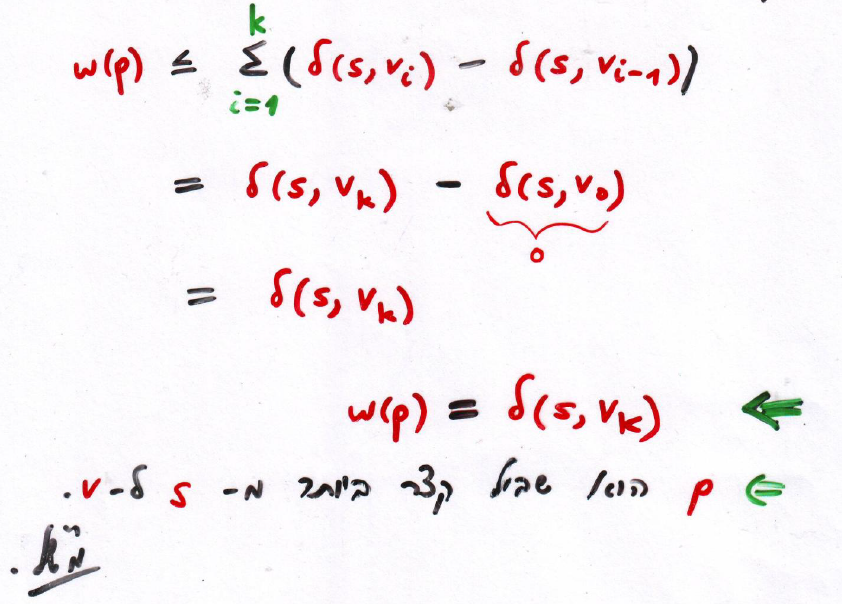 w(p) ≤ Σ_{i=1}^{k} (δ(s, v_i) − δ(s, v_{i-1}))
= δ(s, v_k) − δ(s, v_0)
0
= δ(s, v_k)
⇐ w(p) = δ(s, v_k)
⇐ p הוא שביל קצר ביותר מ- s ל-v.
מ"של.